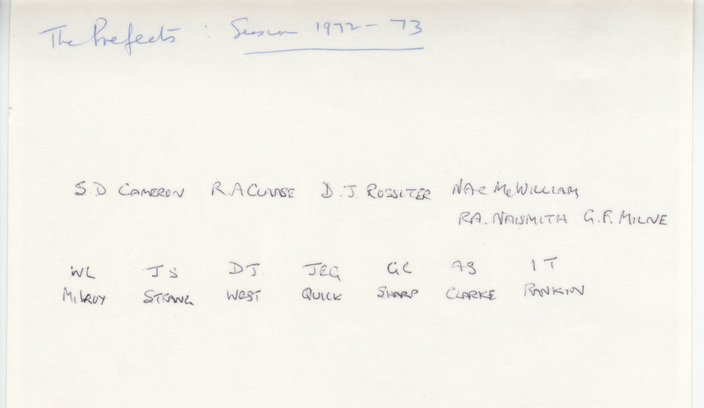 The Prefects : Session 1972-73
S.D CAMERON R.A CLARSE D.J. ROSSITER N.A.C McWILLIAM
R.A. NAISMITH G.F. MILNE
WL JS DJ. JEG GC AG IT
MILROY STRANG WEST QUICK SHARP CLARKE RANKIN